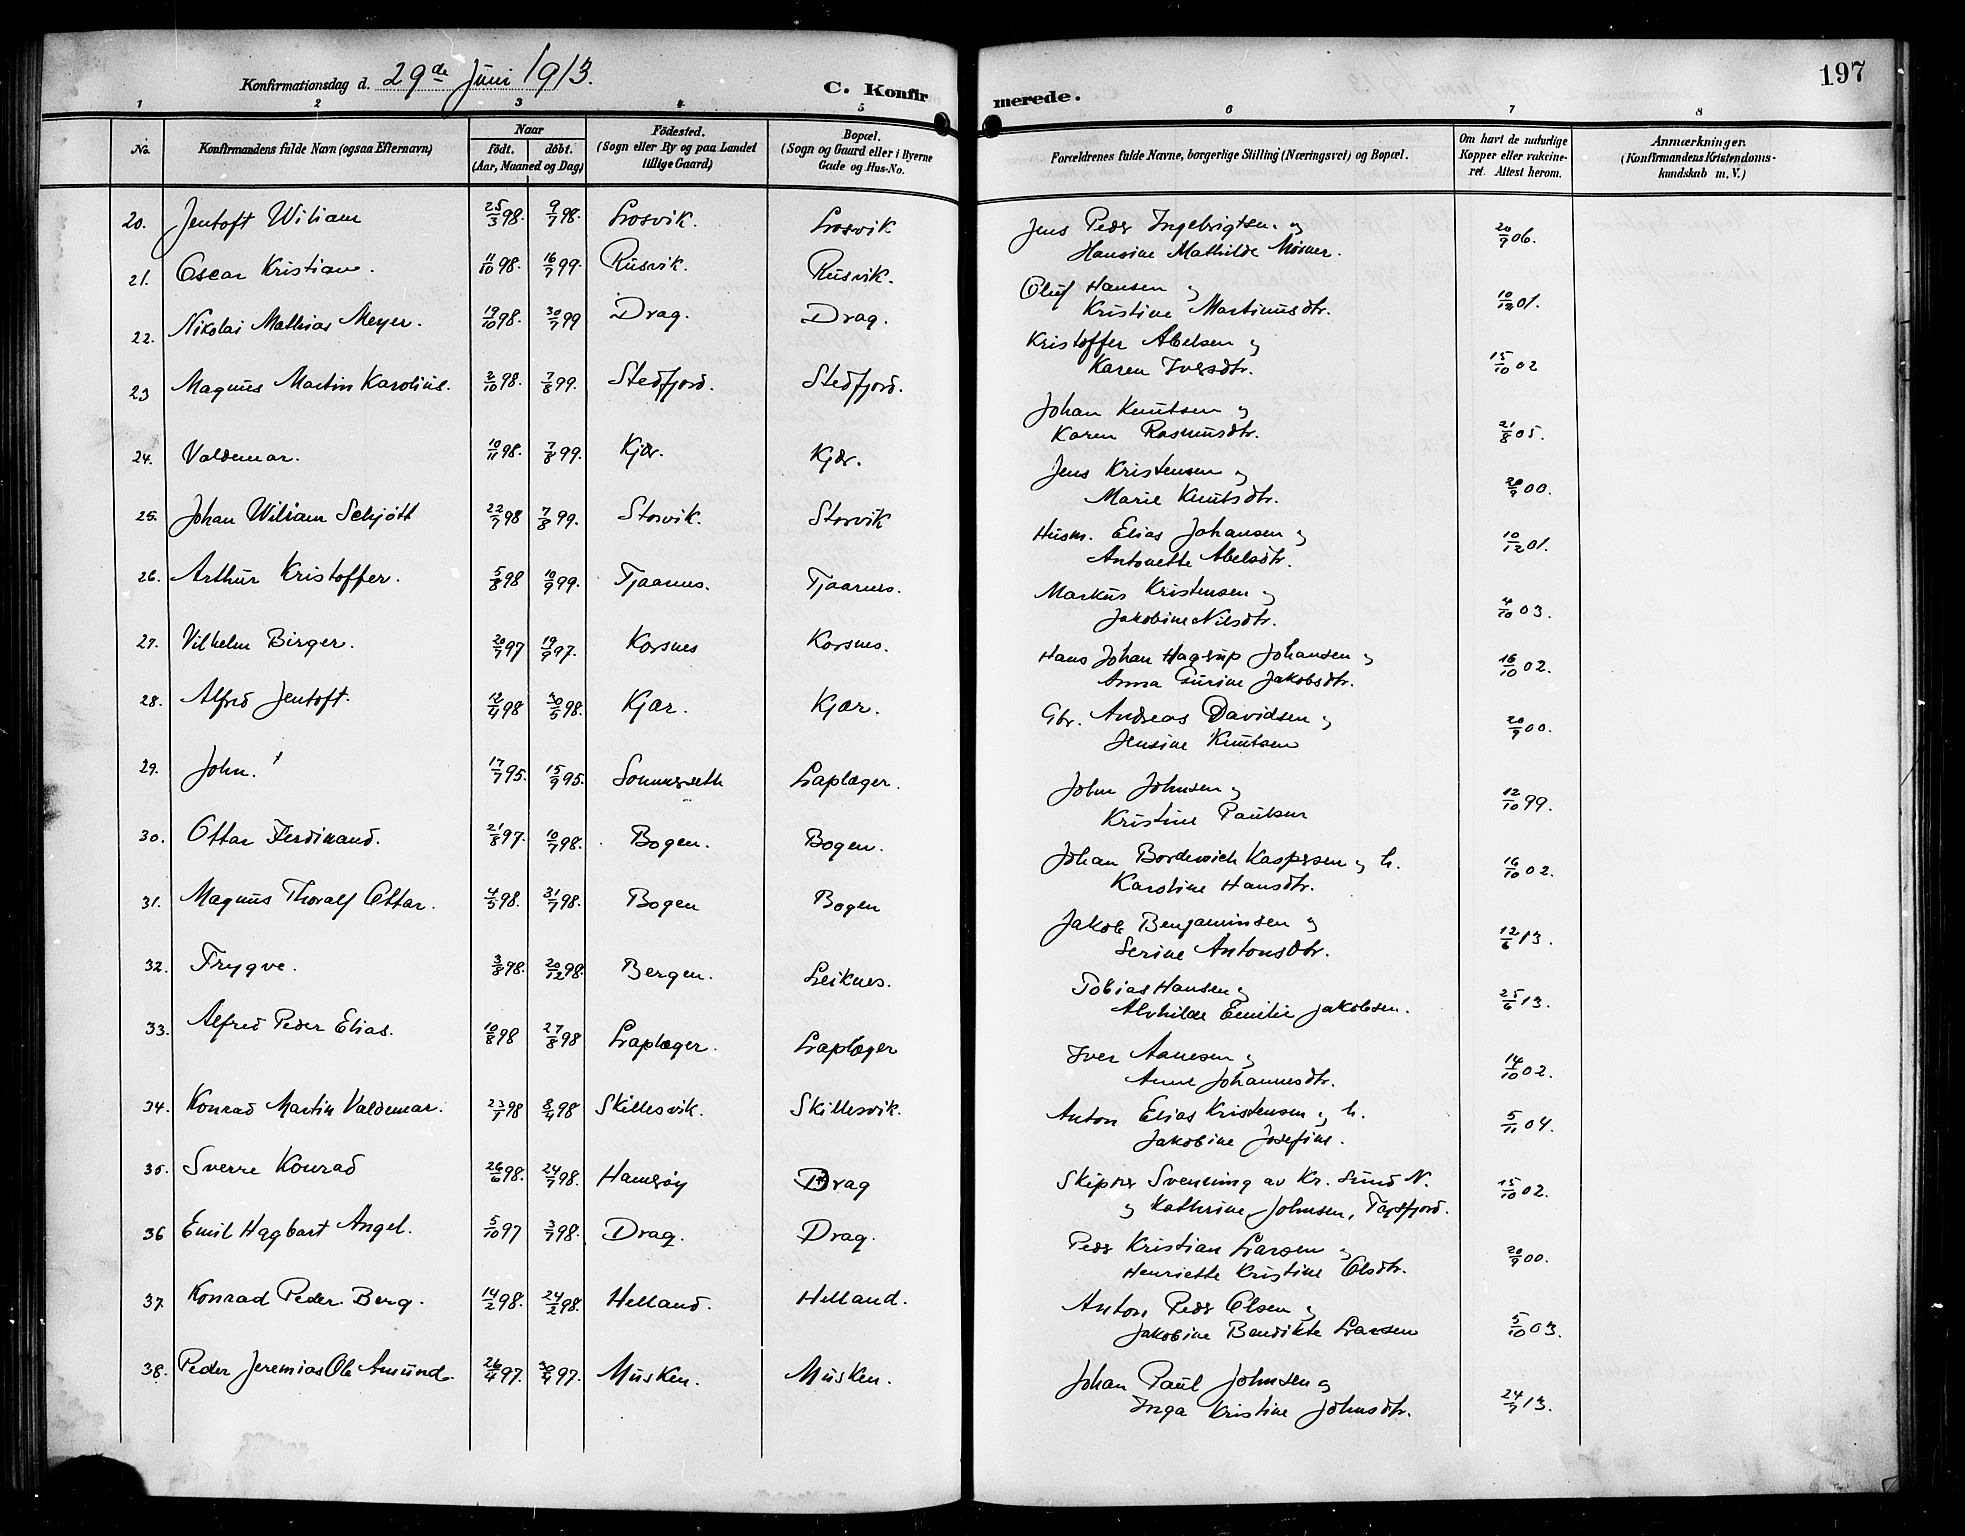 Konfirmationsdag d. 29de Juni 1913.
C. Konfirmerede.
197
1 2 3 4 5 6 7 8
No.
Konfirmandens fulde Navn (ogsaa Efternavn)
Naar
födt. döbt.
(Aar, Maaned og Dag)
Födested.
(Sogn eller By og paa Landet
tillige Gaard)
Bopæl.
(Sogn og Gaard eller i Byerne
Gade og Hus-No.
Forældrenes fulde Navne, borgerlige Stilling (Næringsvei) og Bopæl.
Om havt de naturlige
Kopper eller vakcine-
ret. Attest herom.
Anmærkninger.
(Konfirmandens Kristendoms-
kundskab m. V.)
20. Jentoft Wiliam 25/3 98. 9/7 98. Losvik. Losvik Jens Peder Ingebrigtsen og 20/9 06.
Hansine Mathilde
21. Oscar Kristian. 11/10 98. 16/7 99. Rusvik. Rusvik. Oluf Hansen og 10/12 01.
Kristine Martinusdtr.
22. Nikolai Mathias Meyer. 19/10 98. 30/7 99 Drag. Drag. Kristoffer Abelsen og 15/10 02
Karen Iversdtr.
23 Magnus Martin Karolius. 2/10 98. 7/8 99. Stedfjord. Stedfjord. Johan Knutsen og 21/8 05.
Karen Rasmusdtr.
24. Valdemar. 10/11 98. 7/8 99. Kjær. Kjær. Jens Kristensen og 20/9 00.
Marie Knutsdtr.
25. Johan Wiliam Schjött 22/7 98 7/8 99. Storvik. Storvik Husm. Elias Johansen og 10/12 01.
Antonette Abelsdtr.
26. Arthur Kristoffer. 5/8 98 10/9 99. Tjaarnes. Tjaarnes. Markus Kristensen og 4/10 03.
Jakobine Nilsdtr.
27. Vilhelm Birger. 20/7 97 19/9 97. Korsnes Korsnes. Hans Johan Hagrup Johansen og 16/10 02.
Anna Gurine Jakobsdtr.
28. Alfred Jentoft. 12/4 98 30/5 98. Kjær. Kjær. Gbr. Andreas Davidsen og 20/9 00.
Jensine Knutsen
29. John. 17/7 95. 15/9 95. Sommerseth Laplæger. John Johnsen og 12/10 99.
Kristine Paulsen
30. Ottar Ferdinand. 21/8 97. 10/7 98. Bogen. Bogen. Johan Bordewich Kaspersen og h. 16/10 02.
Karoline Hansdtr.
31. Magnus Thoralf Ottar. 4/5 98. 31/7 98. Bogen Bogen Jakob Benjaminsen og 12/6 13.
Serine Antonsdtr.
32. Trygve. 3/8 98. 20/12 98. Bergen. Leiknes. Tobias Hansen og 25/6 13.
Alvhilde Emilie Jakobsen.
33. Alfred Peder Elias. 10/8 98 27/8 98 Laplæger. Laplæger Iver Aanesen og 14/10 02.
Anne Johannesdtr.
34. Konrad Martin Valdemar. 23/1 98 8/4 98 Skillesvik. Skillesvik. Anton Elias Kristensen og h. 5/11 04.
Jakobine Josefine.
35. Sverre Konrad 26/6 98. 24/7 98. Hamsøy Drag Skipper Svenning av Kr. Sund N. 15/10 02.
og Kathrine Johnsen, Tysfjord.
36 Emil Hagbart Angel. 5/10 97 3/7 98. Drag. Drag. Peder Kristian Larsen og 20/9 00.
Henriette Kristine Olsdtr.
37. Konrad Peder Berg. 14/2 98. 24/2 98. Helland. Helland. Anton Peder Olsen og 5/10 03.
Jakobine Bendikte Larsen
38. Peder Jeremias Ole Amund 26/4 97. 30/4 97. Musken. Musken. Johan Paul Johnsen og 24/7 13.
Inga Kristine Johnsdtr.